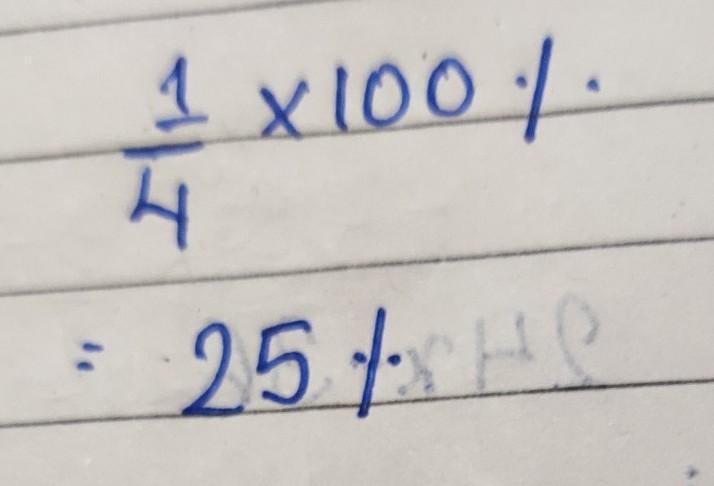 1/4 × 100 %
= 25 %